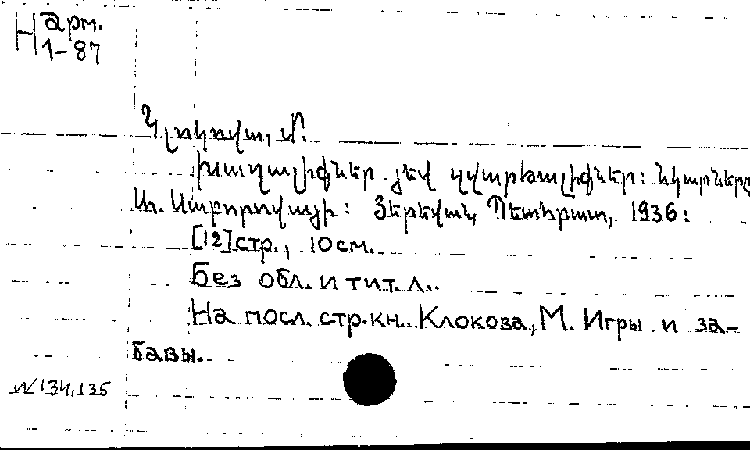 Н арм.
1-87
Կլոկովա, Մ.
Խաղալիքներ յեվ զվարճալիքներ: Նկարները
Ա. Սաբորովայի: Յերեվան, Պետհրատ, 1936:
[12] стр., 10 см.
Без обл. и тит. л.
На посл. стр. кн. Клокова, М. Игры и за-
бавы.
№ 134,135